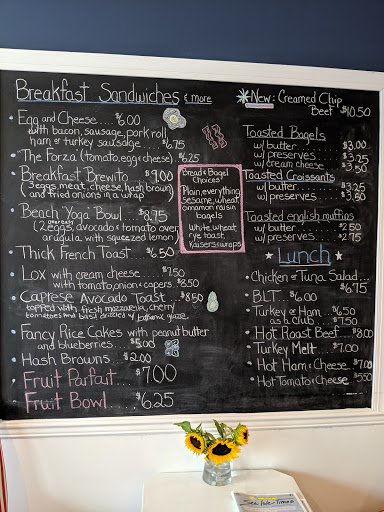 Breakfast Sandwiches & more
• Egg and Cheese.... $6.00
with bacon, sausage, pork roll,
ham or turkey sausage .... $6.75
• "The Forza" (tomato, egg & cheese) .. 6.25
• Breakfast Brewito .... $9.00
(3 eggs, meat, cheese, hash brown)
and fried onions in a wrap
• Beach Yoga Bowl .. $8.75
(2 eggs, avocado & tomato over
arugula with squeezed lemon)
• Thick French Toast ... $6.50
• Lox with cream cheese ... $7.50
with tomato, onion & capers .. 8.50
• Caprese Avocado Toast ... $8.50
topped with fresh mozzarella, cherry
tomatoes and basil drizzled w/ balsamic glaze
• Fancy Rice Cakes with peanut butter
and blueberries .. $5.00
• Hash Browns .. $2.00
• Fruit Parfait .... $7.00
• Fruit Bowl .... $6.25
Bread & Bagel
Choices
Plain, everything
sesame, wheat,
cinnamon raisin
bagels
White, wheat,
rye toast
Kaisers & wraps
New: Creamed Chip
Beef $10.50
Toasted Bagels
w/ butter ........ $3.00
w/ preserves ... $3.25
w/ cream cheese . $3.50
Toasted Croissants
w/ butter ........ $3.25
w/ preserves .... $3.50
Toasted english muffins
w/ butter ........ $2.50
w/ preserves .... $2.75
Lunch
• Chicken or Tuna Salad....
$6.75
• BLT .. $6.00
• Turkey or Ham ... $6.50
as a Club .... $7.50
• Hot Roast Beef .... $8.00
• Turkey Melt ... $7.00
• Hot Ham & Cheese .. $7.00
• Hot Tomato & Cheese .. $5.50